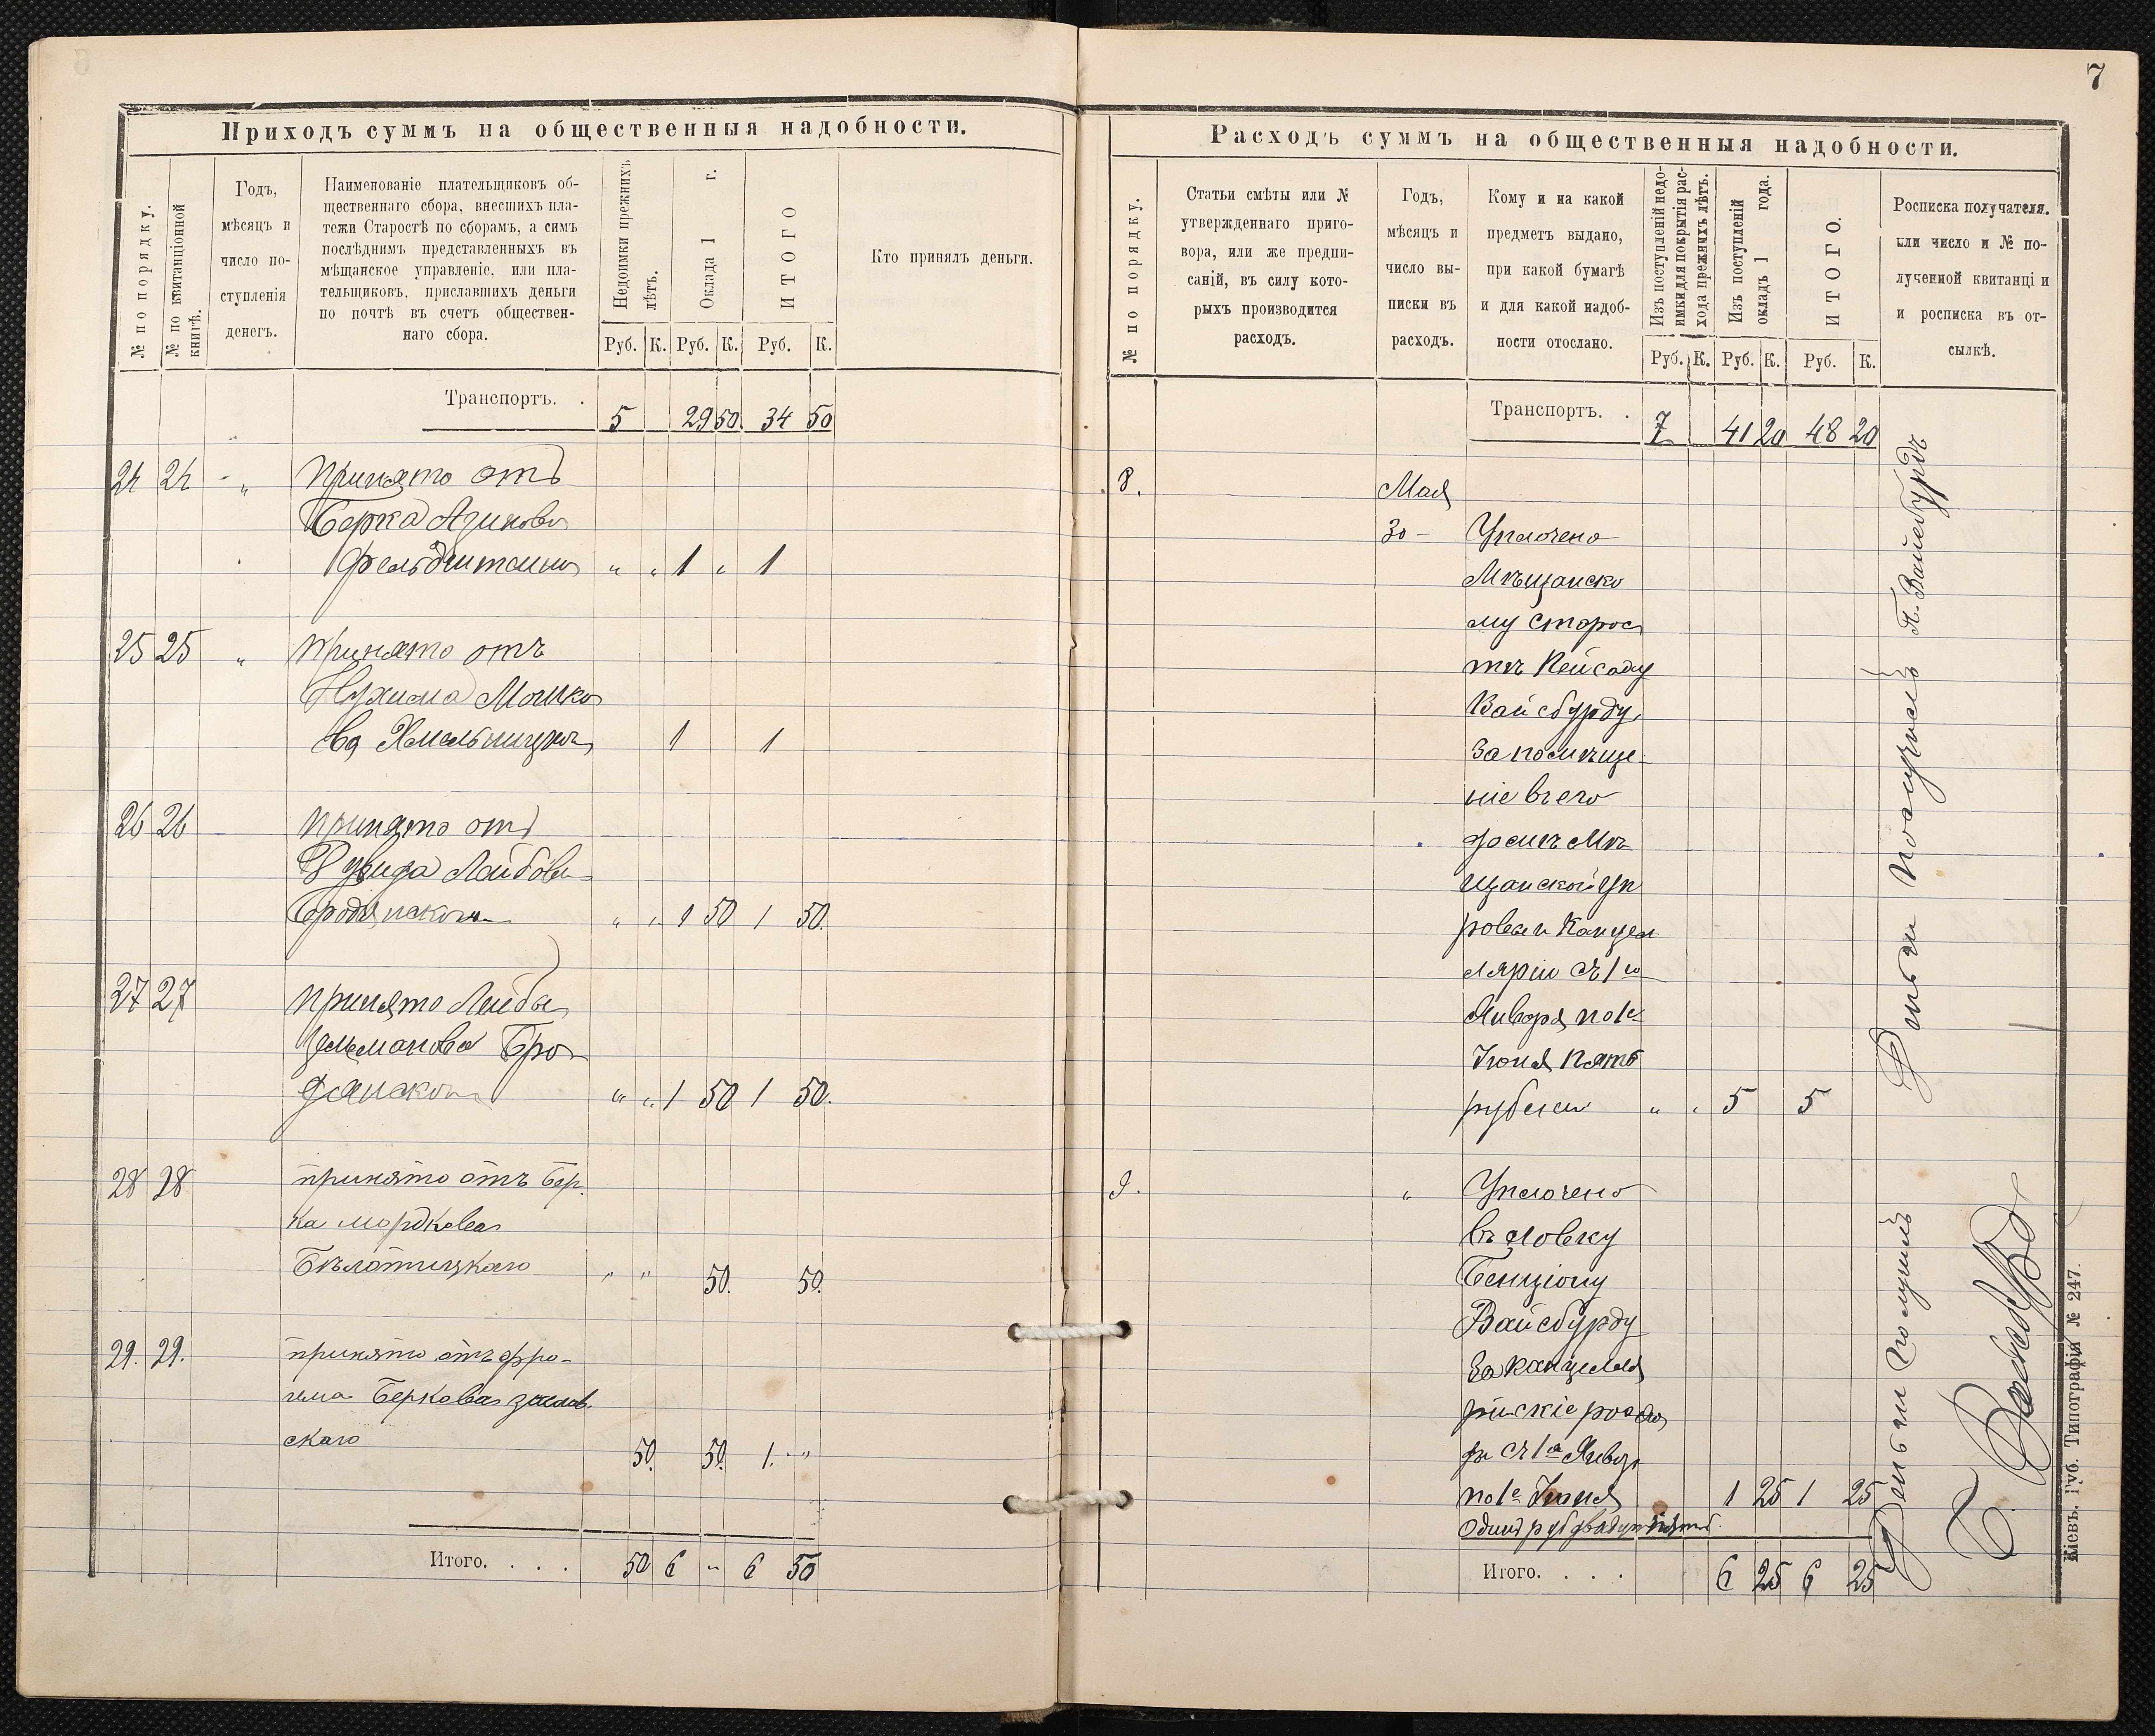 7
Приходъ суммъ на общественныя надобности.
№ по порядку.
№ по квитанціонной книгѣ.
Годъ,
мѣсяцъ и
число по-
ступленія
денегъ.
Наименованіе плательщиковъ об-
щественнаго сбора, внесшихъ пла-
тежи Старостѣ по сборамъ, а симъ
послѣднимъ представленныхъ въ
мѣщанское управленіе, или пла-
тельщиковъ, приславшихъ деньги
по почтѣ въ счетъ обществен-
наго сбора.
Недоимки прежнихъ
лѣтъ.
Оклада 1 г.
ИТОГО
Кто принялъ деньги.
Руб. К. Руб. К. Руб. К.
Транспортъ. . 5 29 50 34 50
24 24 - „ Принято отъ
Берка
Фельдштейна „ „ 1 „ 1
25 25 „ Принято отъ
Нухима Мошко
ва Хмельницкаго 1 1
26 26 Принято отъ
Лейбова
Бродянского „ „ 1 50 1 50.
27 27 Принято Лейбы
Зельманова Бро-
дянского „ „ 1 50 1 50.
28 28 принято отъ Бер.
ка мордкова
Бѣлотицкаго „ „ 50. 50.
29. 29. принято отъ фро-
има Беркова
скаго 50. 50. 1. „
Итого. . . . 50 6 „ 6 50
Расходъ суммъ на общественныя надобности.
№ по порядку.
Статьи смѣты или №
утвержденнаго приго-
вора, или же предпи-
саній, въ силу кото-
рыхъ производится
расходъ.
Годъ,
мѣсяцъ и
число вы-
писки въ
расходъ.
Кому и на какой
предметъ выдано,
при какой бумагѣ
и для какой надоб-
ности отослано.
Изъ поступленій недо-
имки для покрытія рас-
хода прежнихъ лѣтъ.
Изъ поступленій
окладъ 1 года.
ИТОГО.
Росписка получателя.
или число и № по-
лученной квитанціи
и росписка въ от-
сылкѣ.
Руб. К. Руб. К. Руб. К.
Транспортъ. . 7 41 20 48 20
8. Мая
30 - Уплочено
Мѣщанско
му старос
тѣ Пейсаху
Вайсбурду,
за помѣще-
ніе въ его
домѣ Мѣ
щанской Уп
равы и Канцел
ляріи съ 1го
Января по 1е
Іюня пять
рублей „ „ 5 5
Деньги получилъ П. Вайсбурдъ
9. „ Уплочено
Бенціону
Вайсбурду
за канцеля
рискіе расхо
ды съ 1го Января
по 1е Іюня 1 25 1 25
Одинъ руб двадцать пять.
Деньги получилъ
Б. Вайсбурд
Итого. . . . 6 25 6 25
Кіевъ. Губ. Типографія № 247.